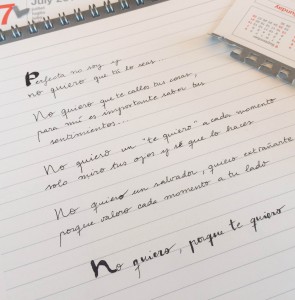 7
July
Perfecta no soy y
no quiero que tú lo seas...
No quiero que te calles tus cosas,
para mí es importante saber tus
sentimientos...
No quiero un "te quiero" a cada momento
solo miro tus ojos y sé que lo haces
No quiero un salvador, quiero extrañarte
porque valoro cada momento a tu lado
No quiero, porque te quiero